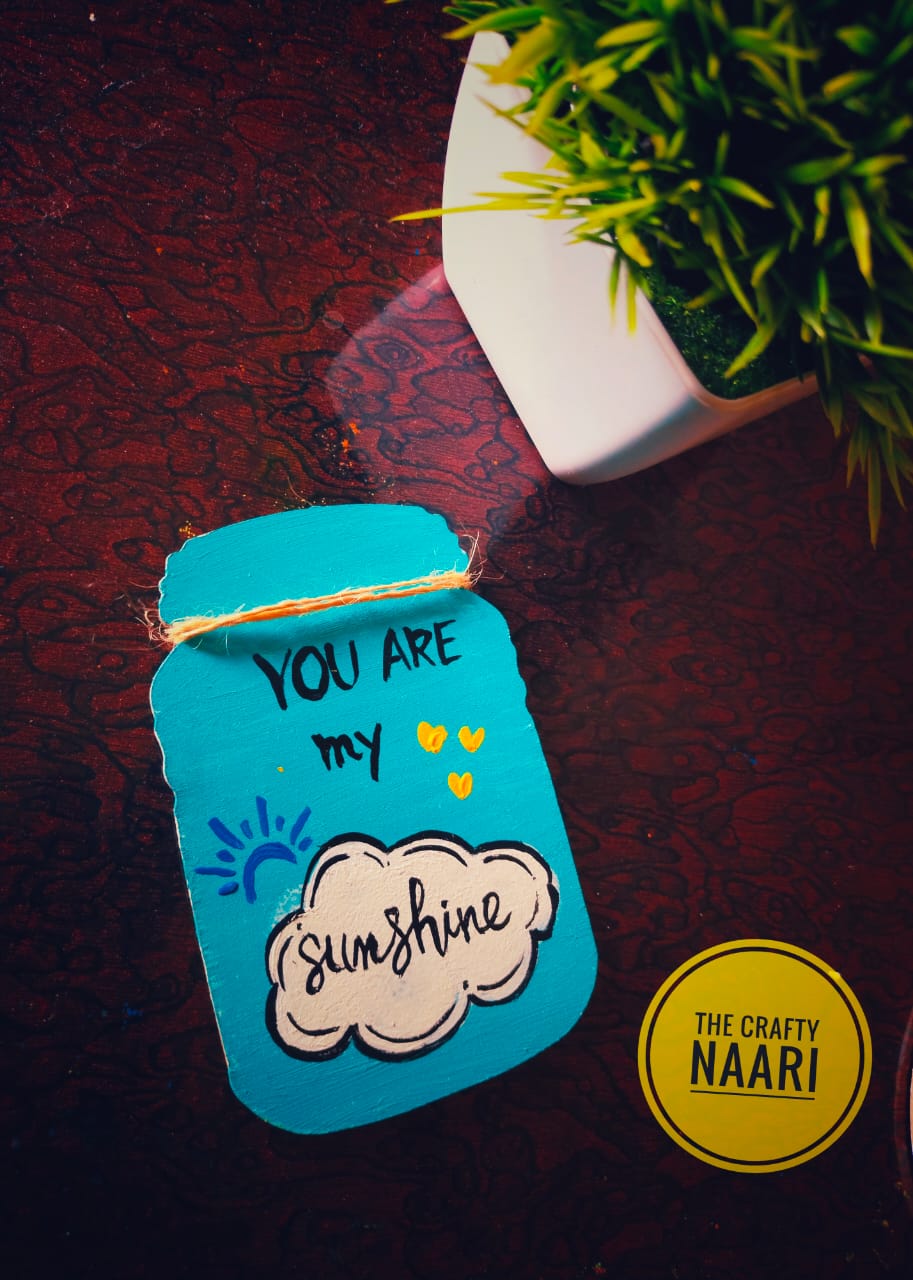 YOU ARE
my
sunshine
THE CRAFTY
NAARI